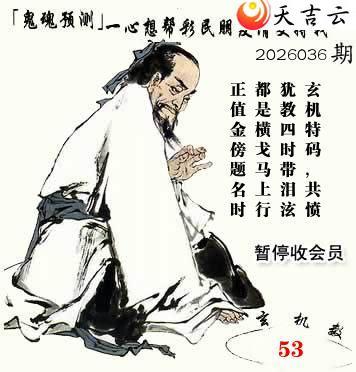 「鬼魂预测」一心想帮彩民朋
天吉云
2026036期
玄机特码，共愤
犹教四时带泪泫
都是横戈马上行
正值金傍题名时
暂停收会员
玄机
53